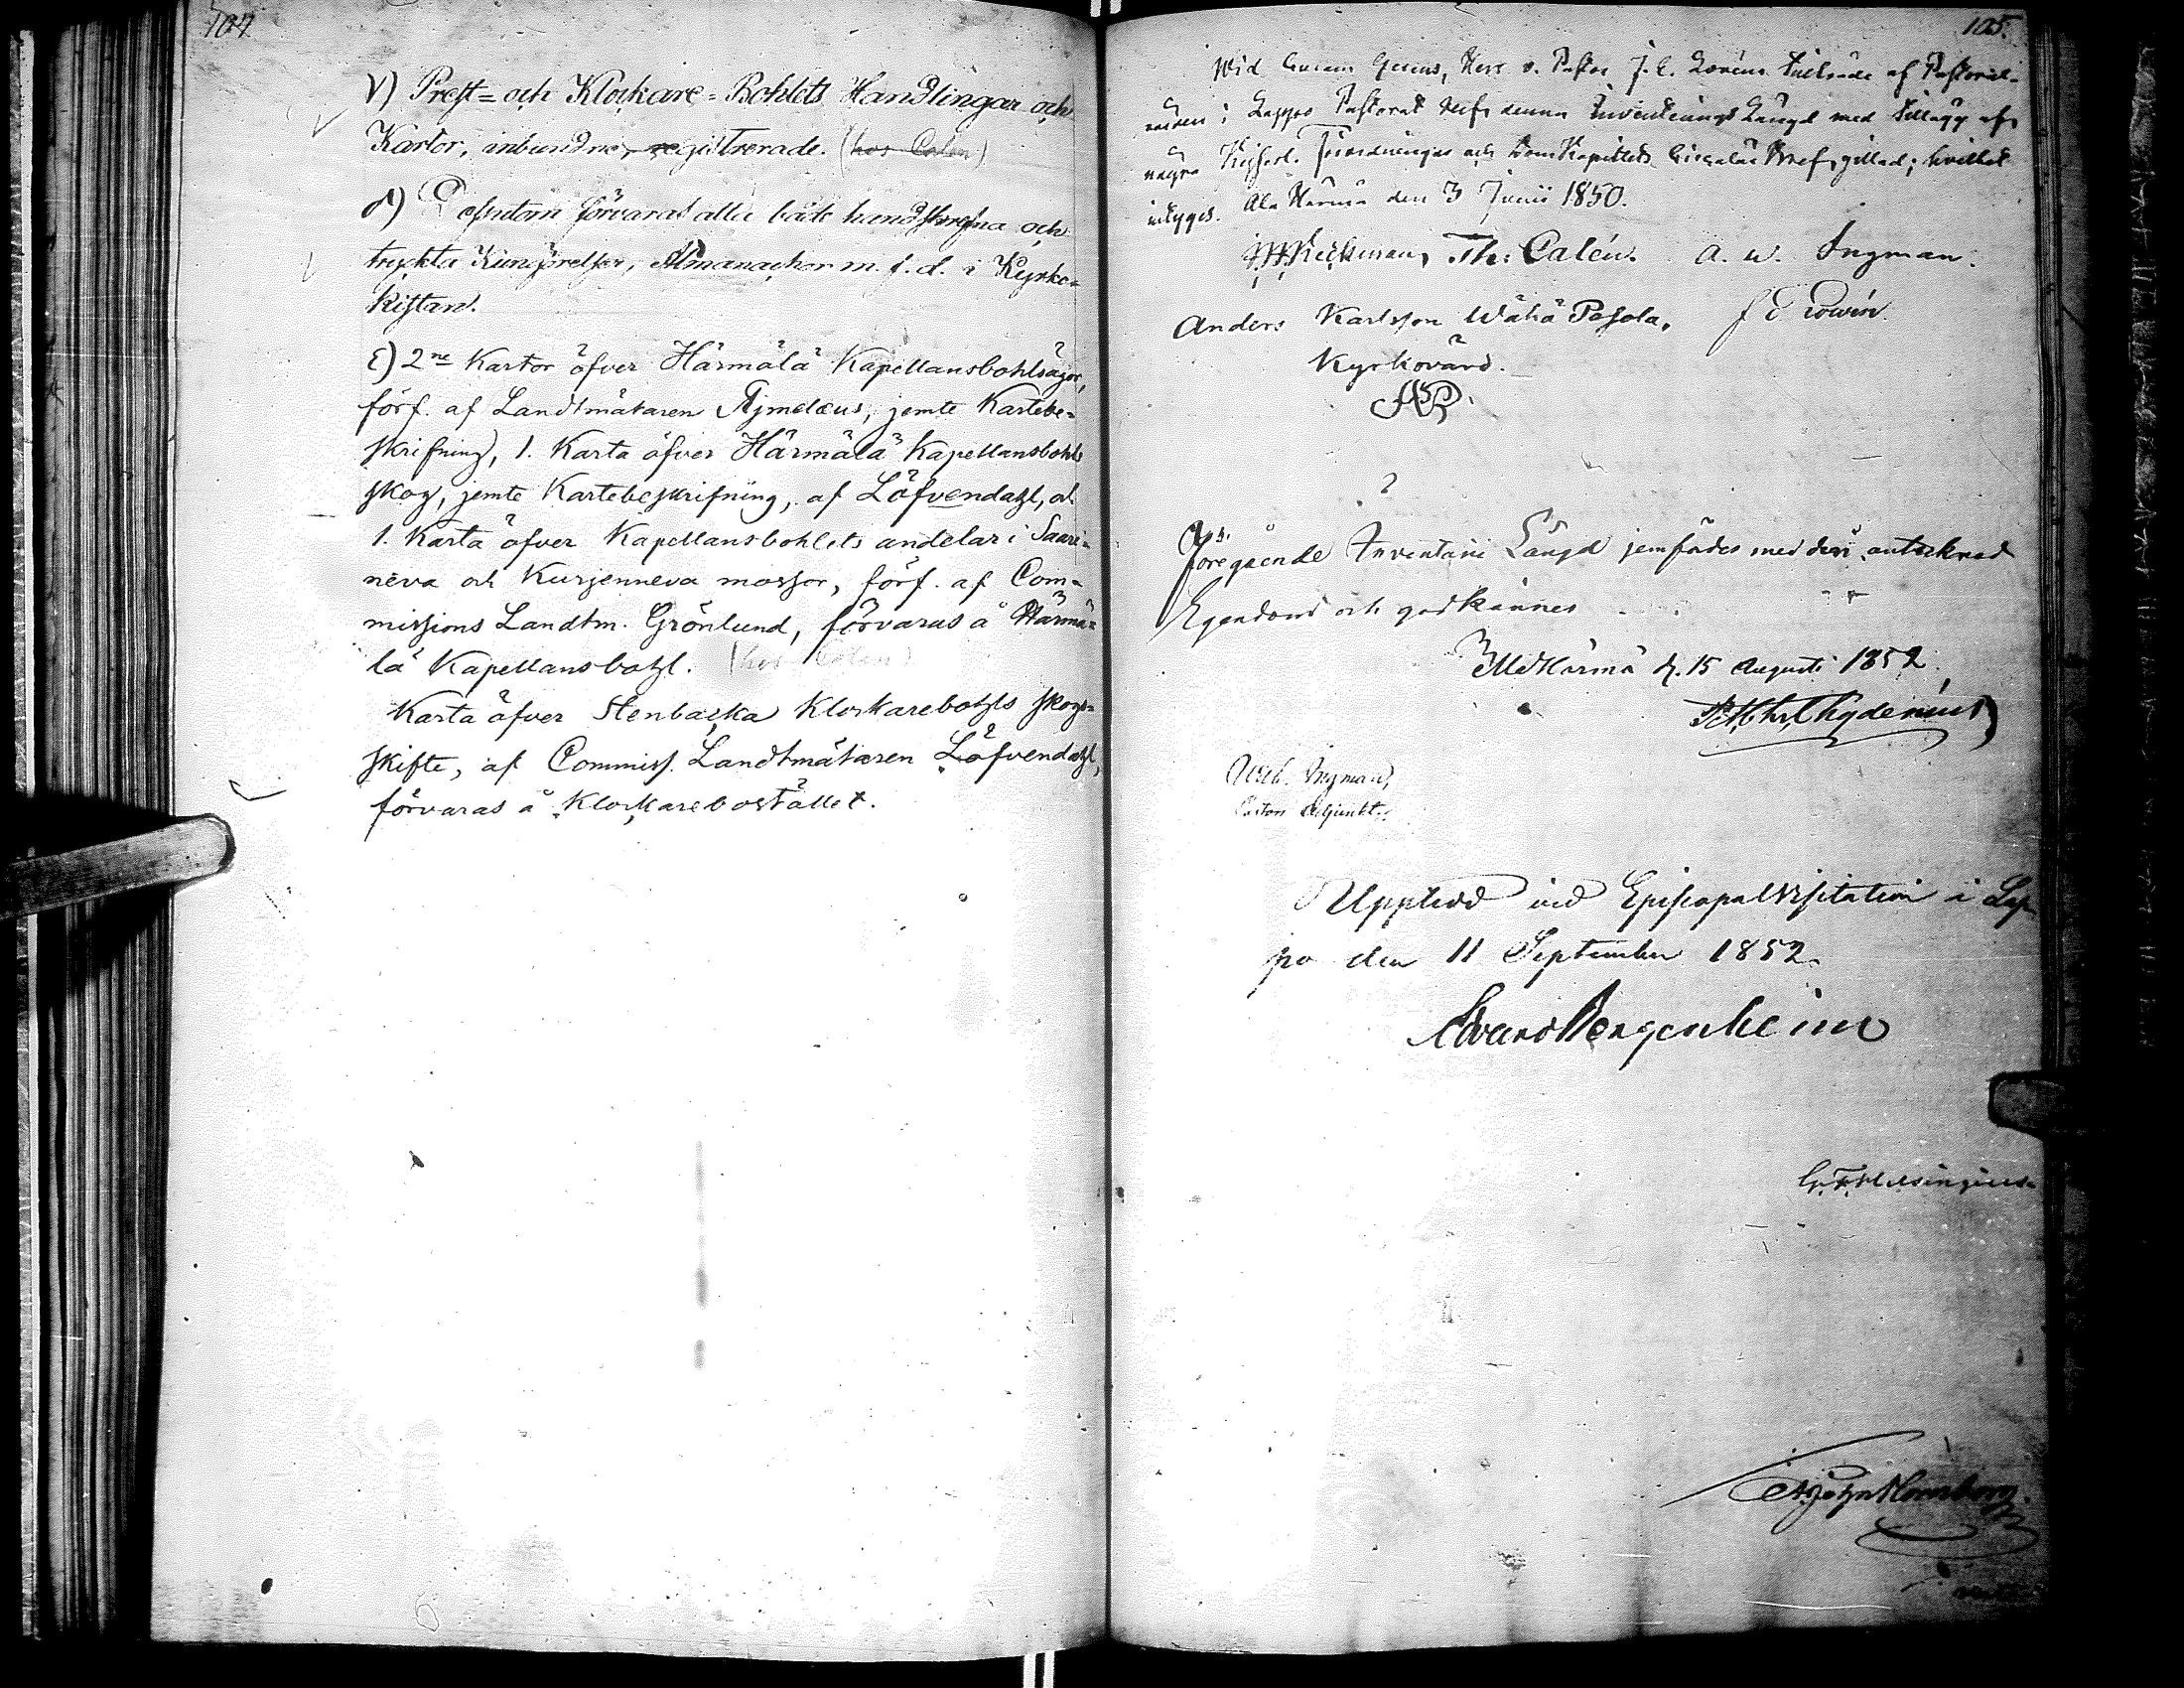 104
γ) Prest= och Klockare=Bohlets Handlingar och
Kartor, inbundne, registrerade. (hos Calen)
δ) Desutom förvaras alla både handskrefna och
tryckta Kungörelser, Almanachor m. f. d. i Kyrko=
kistan.
ε) 2ne Kartor öfver Härmälä Kapellansbohlsägor,
förf. af Landtmätaren Ajmelæus, jemte Kartebe=
skrifning, 1. Karta öfver Härmälä Kapellansbohls
skog, jemte Kartebeskrifning, af Löfvendahl, och
1. Karta öfver Kapellansbohlets andelar i Saari=
neva och Kurjenneva mossor, förf. af Com=
missions Landtm. Grönlund, förvaras å Härmä=
lä Kapellansbohl. (hos Calen)
Karta öfver Stenbacka Klockarebohls skogs=
skifte, af Commiss. Landtmätaren Löfvendahl,
förvaras å Klockarebostället.
105.
Wid Herr v. Pastor J. E. tillträde af Pastoral-
vården i Lappo Pastorat blef denna Inventarii Längd med tillägg af
några Kejserl. Förordningar och DomKapitlets Circulär Bref, gillad; hvilket
intygas. Ala Härmä den 3 Junii 1850.
Th: Calén. A. W. Ingman.
Anders Karlsson Wähä Pasola,
Kyrkovärd.
Föregående Inventarii Längd jemfördes med deri antecknad
Egendom och godkännes
Härmä d. 15 Augusti 1852.
Chydenius
Wilh. Ingman,
Pastors Adjunkt.
Uppläst vid Episcopalvisitation i Lap
po den 11 September 1852.
Edvard Bergenheim
Helsingius
Hornborg